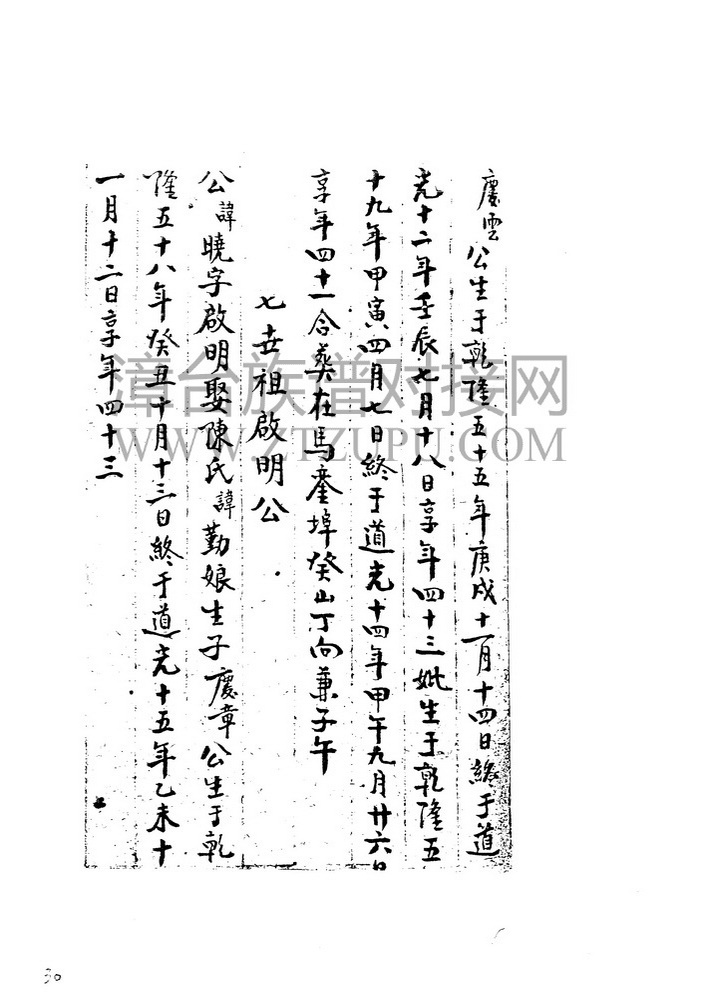 慶雲公生于乾隆五十五年庚戌十一月十四日終于道
光十二年壬辰七月十八日享年四十三妣生于乾隆五
十九年甲寅四月七日終于道光十四年甲午九月廿六日
享年四十一合葬在馬埔癸山丁向兼子午
七世祖啟明公
公諱曉字啟明娶陳氏諱勤娘生子慶章公生于乾
隆五十八年癸丑十月十三日終于道光十五年乙未十
一月十二日享年四十三
漳台族谱对接网
WWW.ZTZUPU.COM
30